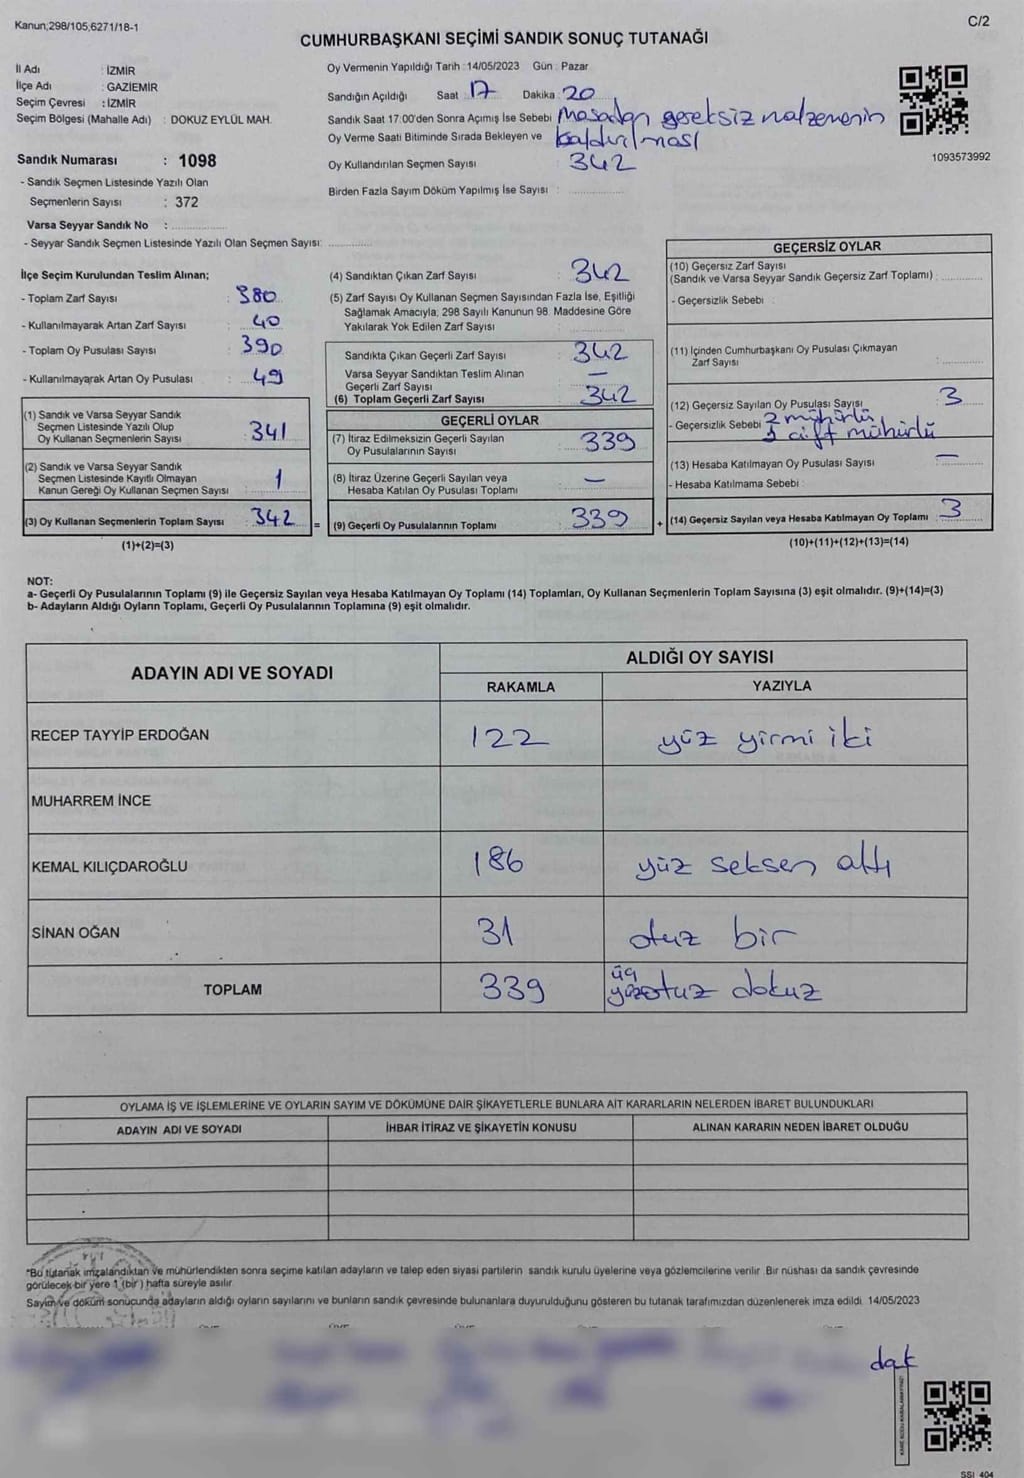 Kanun;298/105,6271/18-1
C/2
CUMHURBAŞKANI SEÇİMİ SANDIK SONUÇ TUTANAĞI
İl Adı : İZMİR
İlçe Adı : GAZİEMİR
Seçim Çevresi : İZMİR
Seçim Bölgesi (Mahalle Adı) : DOKUZ EYLÜL MAH.
Sandık Numarası : 1098
- Sandık Seçmen Listesinde Yazılı Olan
Seçmenlerin Sayısı : 372
Varsa Seyyar Sandık No :
- Seyyar Sandık Seçmen Listesinde Yazılı Olan Seçmen Sayısı:
Oy Vermenin Yapıldığı Tarih : 14/05/2023 Gün : Pazar
Sandığın Açıldığı Saat : 17 Dakika : 20
Sandık Saat 17:00'den Sonra Açımış İse Sebebi Masadan gereksiz malzemenin
Oy Verme Saati Bitiminde Sırada Bekleyen ve kaldırılması
Oy Kullandırılan Seçmen Sayısı : 342
Birden Fazla Sayım Döküm Yapılmış İse Sayısı :
1093573992
İlçe Seçim Kurulundan Teslim Alınan;
- Toplam Zarf Sayısı : 380
- Kullanılmayarak Artan Zarf Sayısı : 40
- Toplam Oy Pusulası Sayısı : 390
- Kullanılmayarak Artan Oy Pusulası : 49
(1) Sandık ve Varsa Seyyar Sandık
Seçmen Listesinde Yazılı Olup
Oy Kullanan Seçmenlerin Sayısı : 341
(2) Sandık ve Varsa Seyyar Sandık
Seçmen Listesinde Kayıtlı Olmayan
Kanun Gereği Oy Kullanan Seçmen Sayısı : 1
(3) Oy Kullanan Seçmenlerin Toplam Sayısı : 342 =
(1)+(2)=(3)
(4) Sandıktan Çıkan Zarf Sayısı : 342
(5) Zarf Sayısı Oy Kullanan Seçmen Sayısından Fazla İse, Eşitliği
Sağlamak Amacıyla, 298 Sayılı Kanunun 98. Maddesine Göre
Yakılarak Yok Edilen Zarf Sayısı :
Sandıkta Çıkan Geçerli Zarf Sayısı : 342
Varsa Seyyar Sandıktan Teslim Alınan
Geçerli Zarf Sayısı : —
(6) Toplam Geçerli Zarf Sayısı : 342
GEÇERLİ OYLAR
(7) İtiraz Edilmeksizin Geçerli Sayılan
Oy Pusulalarının Sayısı : 339
(8) İtiraz Üzerine Geçerli Sayılan veya
Hesaba Katılan Oy Pusulası Toplamı : —
(9) Geçerli Oy Pusulalarının Toplamı : 339 +
GEÇERSİZ OYLAR
(10) Geçersiz Zarf Sayısı
(Sandık ve Varsa Seyyar Sandık Geçersiz Zarf Toplamı) :
- Geçersizlik Sebebi :
(11) İçinden Cumhurbaşkanı Oy Pusulası Çıkmayan
Zarf Sayısı :
(12) Geçersiz Sayılan Oy Pusulası Sayısı : 3
- Geçersizlik Sebebi : 2 mühürlü
1 çift mühürlü
(13) Hesaba Katılmayan Oy Pusulası Sayısı : —
- Hesaba Katılmama Sebebi :
(14) Geçersiz Sayılan veya Hesaba Katılmayan Oy Toplamı : 3
(10)+(11)+(12)+(13)=(14)
NOT:
a- Geçerli Oy Pusulalarının Toplamı (9) ile Geçersiz Sayılan veya Hesaba Katılmayan Oy Toplamı (14) Toplamları, Oy Kullanan Seçmenlerin Toplam Sayısına (3) eşit olmalıdır. (9)+(14)=(3)
b- Adayların Aldığı Oyların Toplamı, Geçerli Oy Pusulalarının Toplamına (9) eşit olmalıdır.
ADAYIN ADI VE SOYADI
ALDIĞI OY SAYISI
RAKAMLA YAZIYLA
RECEP TAYYİP ERDOĞAN 122 yüz yirmi iki
MUHARREM İNCE
KEMAL KILIÇDAROĞLU 186 yüz seksen altı
SİNAN OĞAN 31 otuz bir
TOPLAM 339 üç yüzotuz dokuz
OYLAMA İŞ VE İŞLEMLERİNE VE OYLARIN SAYIM VE DÖKÜMÜNE DAİR ŞİKAYETLERLE BUNLARA AİT KARARLARIN NELERDEN İBARET BULUNDUKLARI
ADAYIN ADI VE SOYADI İHBAR İTİRAZ VE ŞİKAYETİN KONUSU ALINAN KARARIN NEDEN İBARET OLDUĞU
*Bu tutanak imzalandıktan ve mühürlendikten sonra seçime katılan adayların ve talep eden siyasi partilerin sandık kurulu üyelerine veya gözlemcilerine verilir. Bir nüshası da sandık çevresinde
görülecek bir yere 1 (bir) hafta süreyle asılır.
Sayım ve döküm sonucunda adayların aldığı oyların sayılarını ve bunların sandık çevresinde bulunanlara duyurulduğunu gösteren bu tutanak tarafımızdan düzenlenerek imza edildi. 14/05/2023
dak
KARE KODU KARALAMAYINIZ!
SSI 404